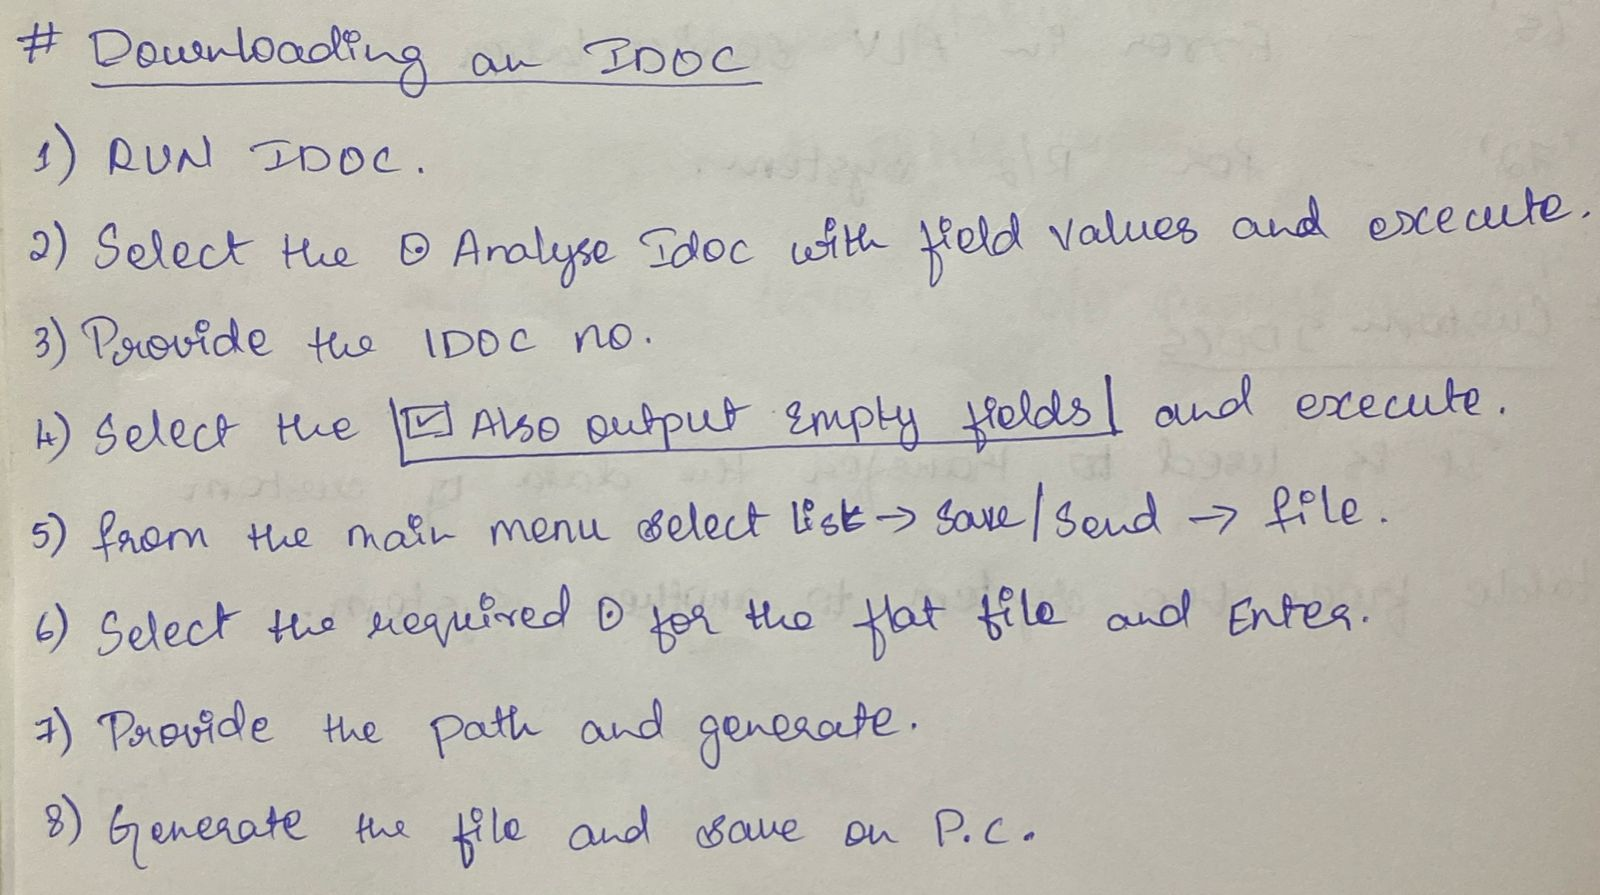 # Downloading an IDOC
1) RUN IDOC.
2) Select the ⊙ Analyse Idoc with field values and execute.
3) Provide the IDOC no.
4) Select the ☑ Also output Empty fields and execute.
5) from the main menu select list → save/send → file.
6) Select the required ⊙ for the flat file and Enter.
7) Provide the path and generate.
8) Generate the file and save on P.C.